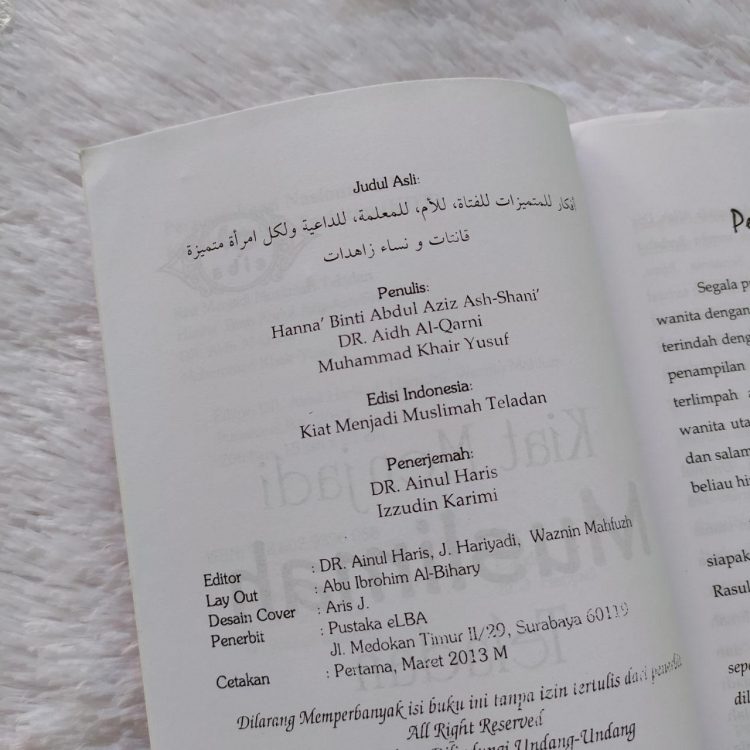 Judul Asli:
أفكار للمتميزات للفتاة، للأم، للمعلمة، للداعية ولكل امرأة متميزة
قانتات و نساء زاهدات
Penulis:
Hanna' Binti Abdul Aziz Ash-Shani'
DR. Aidh Al-Qarni
Muhammad Khair Yusuf
Edisi Indonesia:
Kiat Menjadi Muslimah Teladan
Penerjemah:
DR. Ainul Haris
Izzudin Karimi
Editor : DR. Ainul Haris, J. Hariyadi, Waznin Mahfuzh
Lay Out : Abu Ibrohim Al-Bihary
Desain Cover : Aris J.
Penerbit : Pustaka eLBA
Jl. Medokan Timur II/29, Surabaya 60119
Cetakan : Pertama, Maret 2013 M
Dilarang Memperbanyak isi buku ini tanpa izin tertulis dari penerbit
All Right Reserved
Dilindungi Undang-Undang
Segala
wanita dengan
terindah
penampilan
terlimpah
wanita
dan salam
beliau